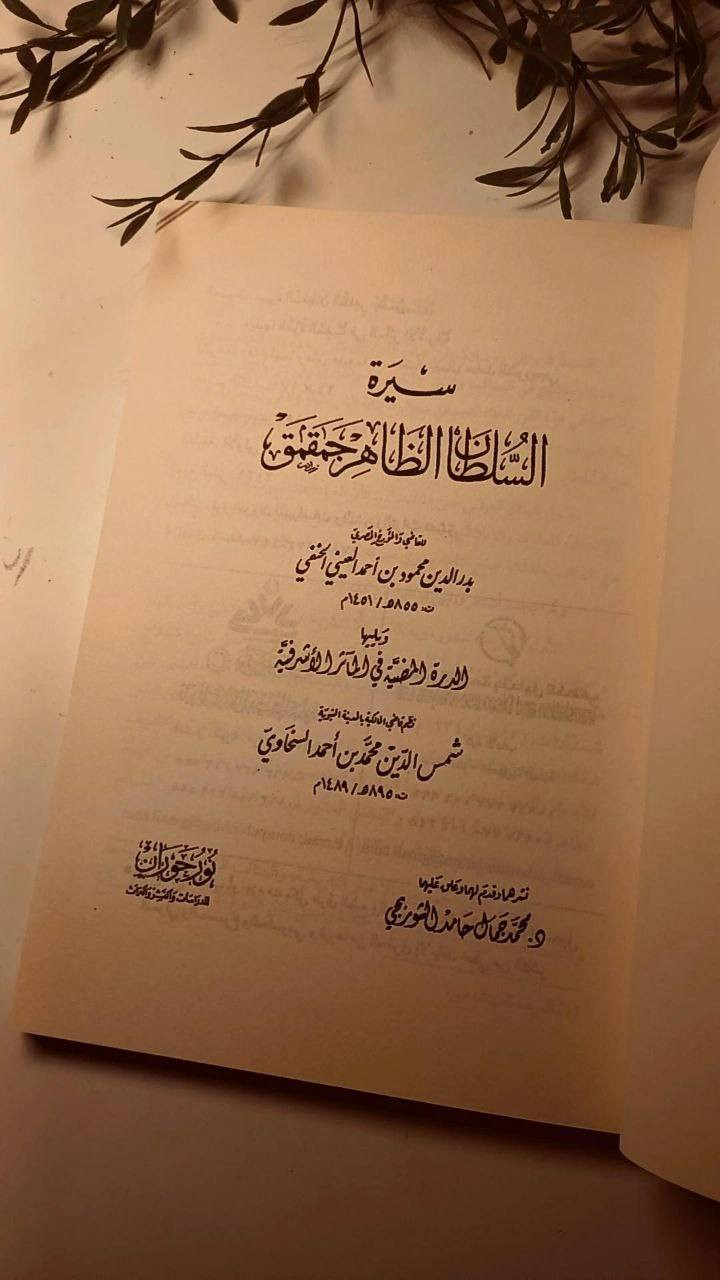 سيرة
السلطان الظاهر جقمق
للقاضي والمؤرخ المصري
بدر الدين محمود بن أحمد العيني الحنفي
ت: ٨٥٥هـ/١٤٥١م
ويليها
الدرة المضية في المآثر الأشرفية
نظم قاضي المالكية بالمدينة النبوية
شمس الدين محمد بن أحمد السخاوي
ت: ٨٩٥هـ/١٤٨٩م
نشرهما وقدم لهما وعلق عليهما
د. محمد جمال حامد الشوربجي
نور حوران
للدراسات والنشر والتراث